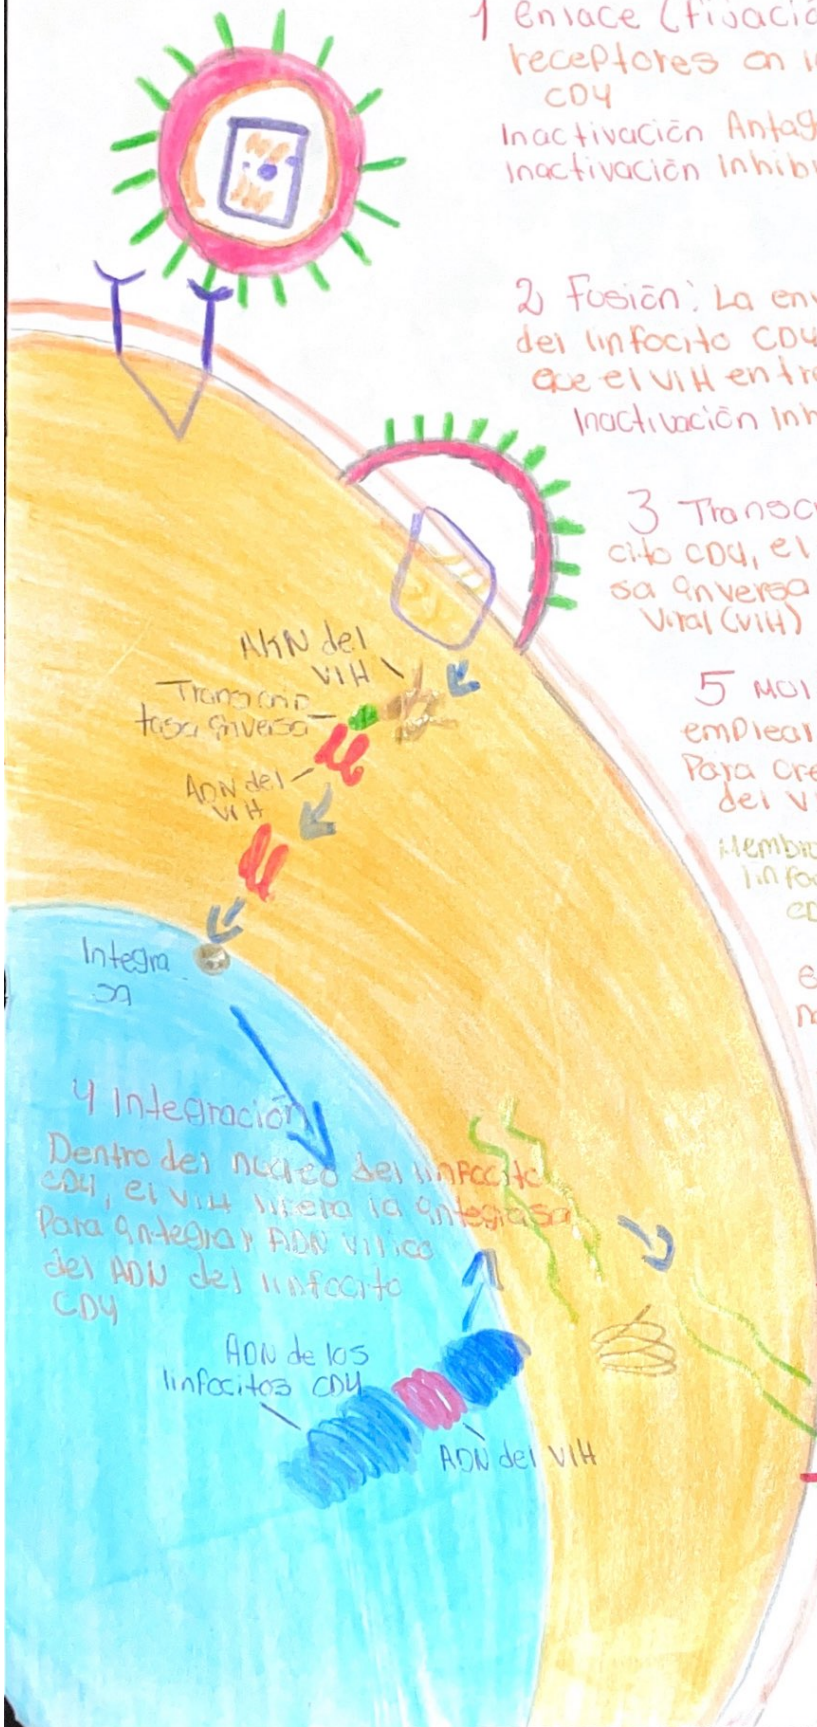 1 Enlace (fijació
receptores en l
CD4
Inactivación Antag
Inactivación Inhibi
2 Fusión: La env
del linfocito CD4
que el VIH entr
Inactivación Inh
3 Transc
cito CD4, el
sa inversa
Viral (VIH)
5 Mul
emplear
Para cre
del V
Membr
linfo
CD
ARN del
VIH
Transcrip
tasa inversa
ADN del
VIH
Integra
sa
4 Integración
Dentro del núcleo del linfocito
CD4, el VIH libera la integrasa
Para integrar ADN
del ADN del linfocito
CD4
ADN de los
linfocitos CD4
ADN del VIH